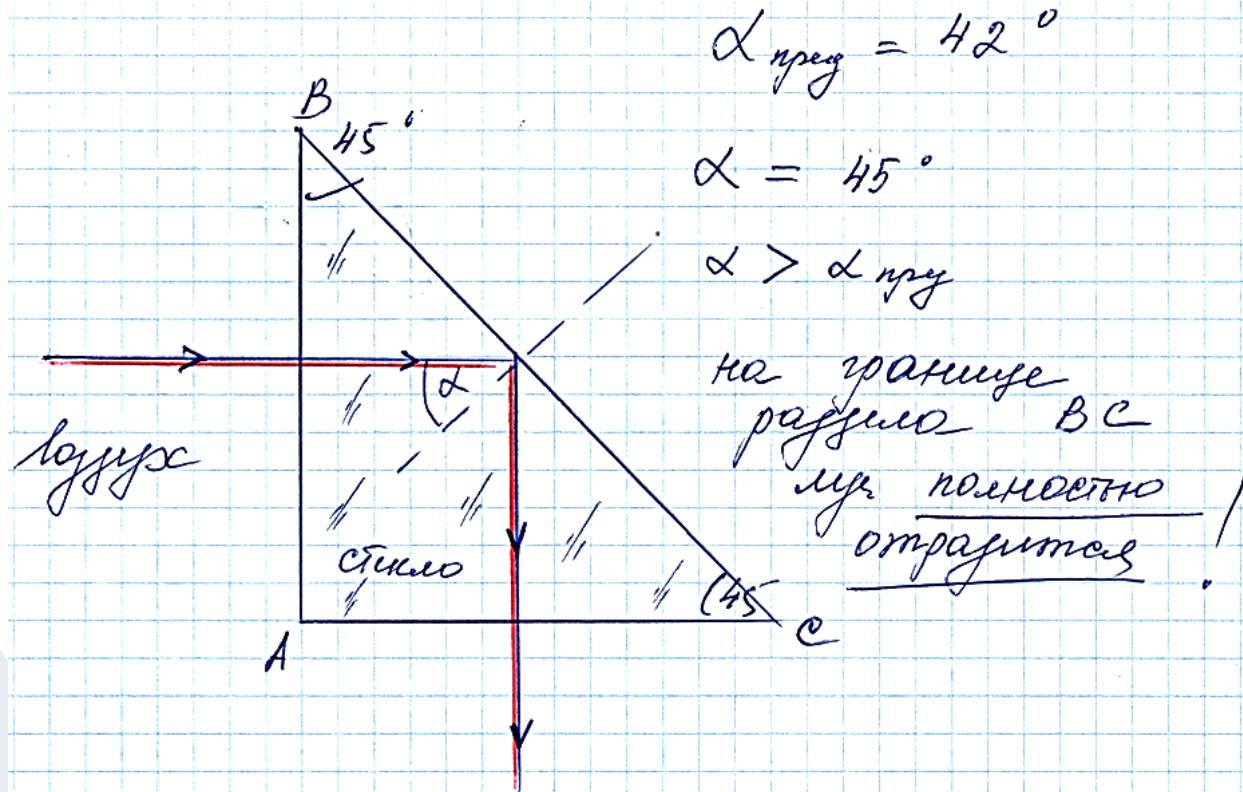 α пред = 42°
B
45°
α = 45°
α > α пред
на границе
раздела BC
луч полностью
отразится !
α
воздух
стекло
(45
A
C